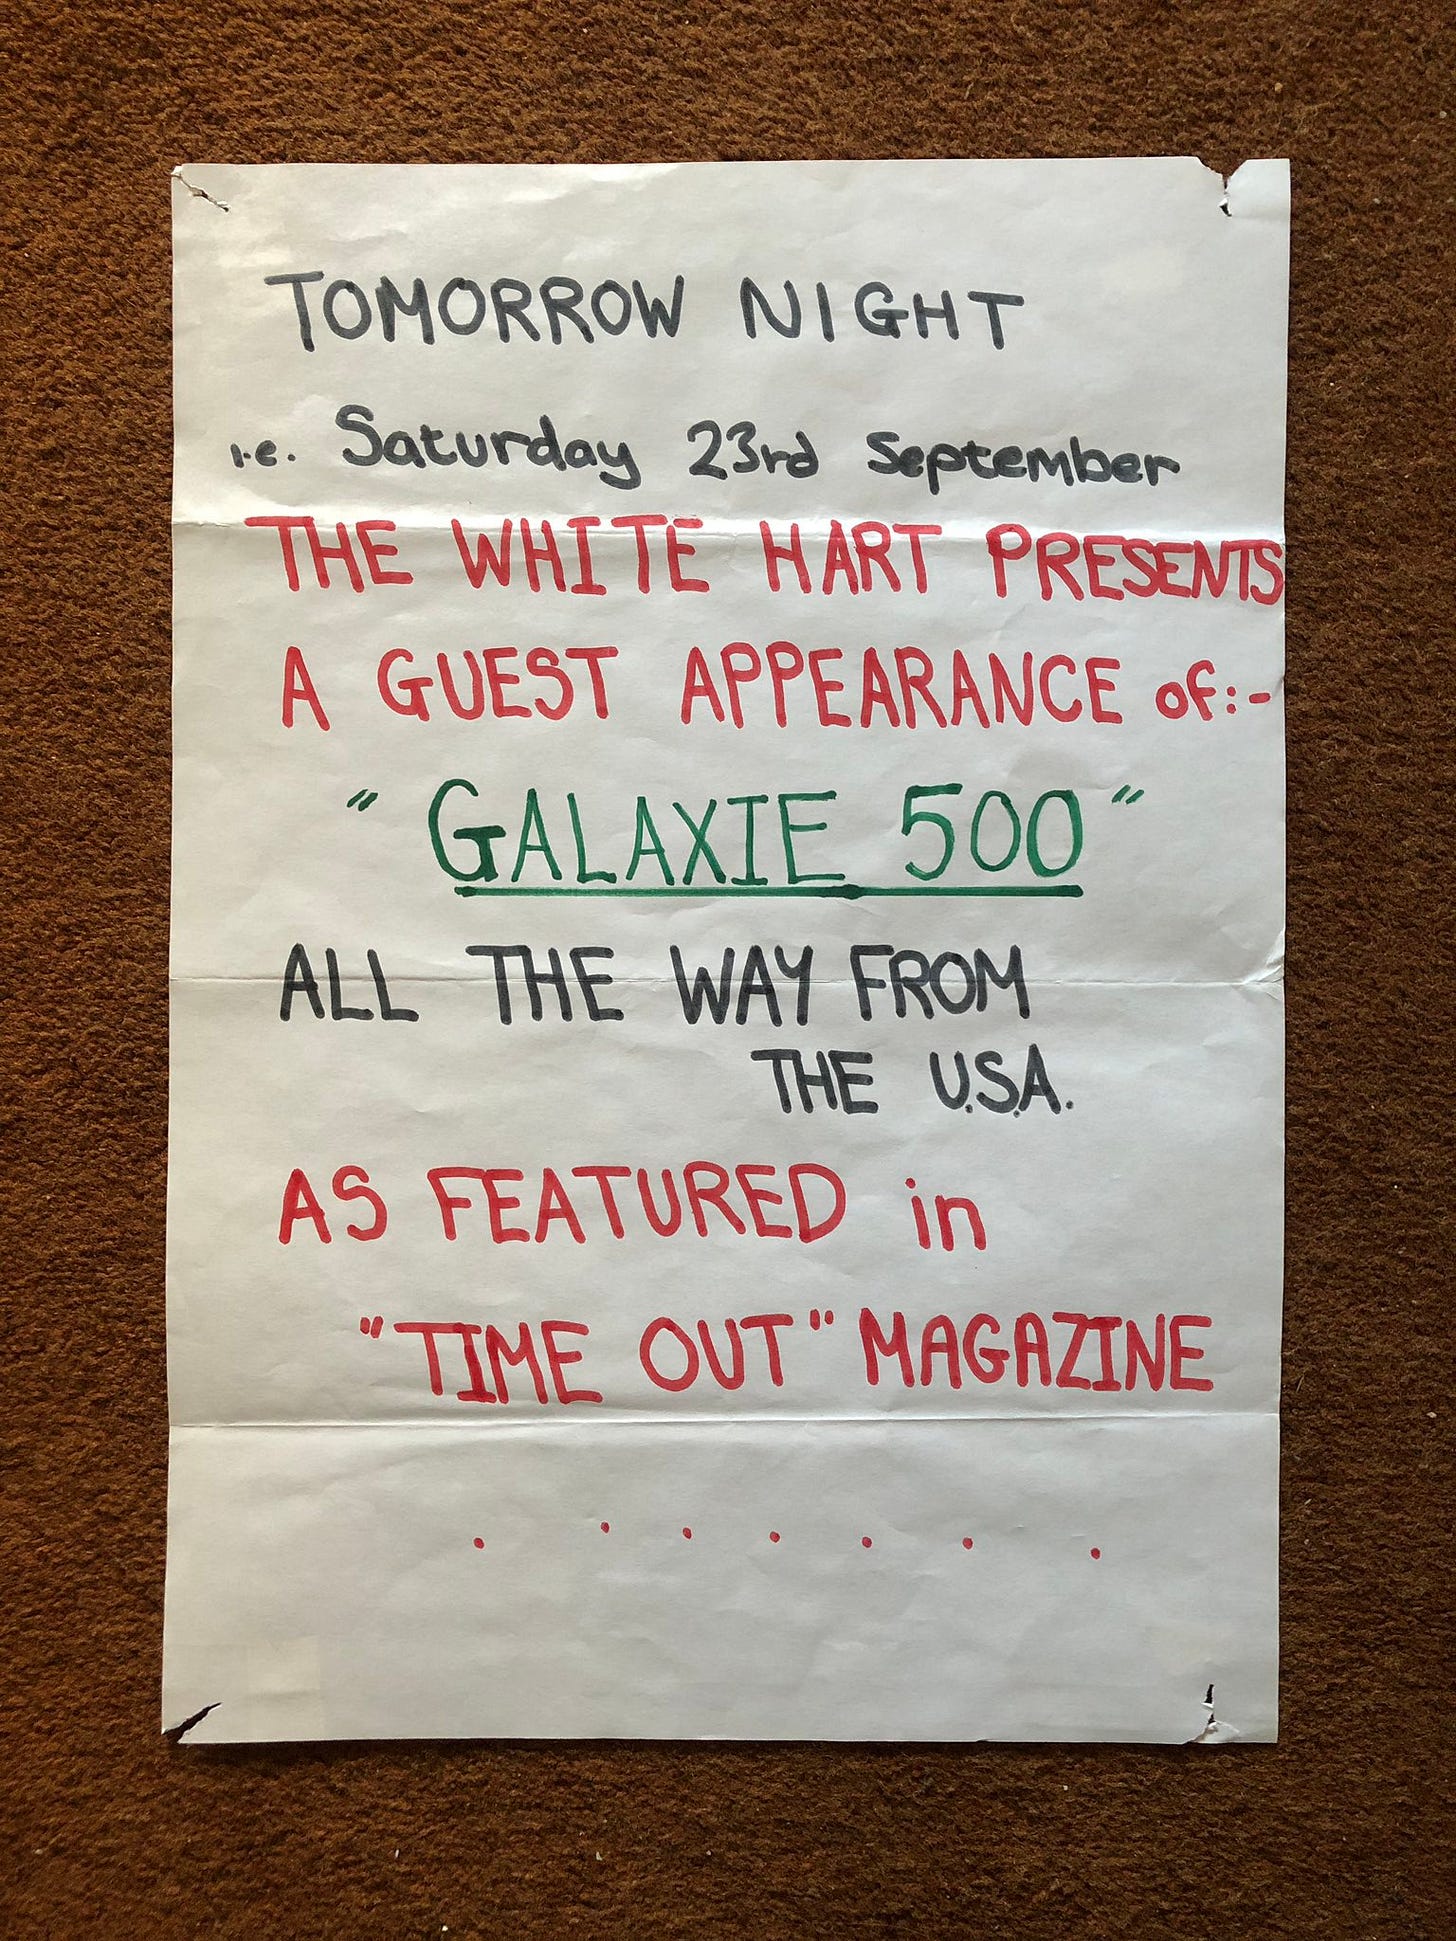 TOMORROW NIGHT
i.e. Saturday 23rd September
THE WHITE HART PRESENTS
A GUEST APPEARANCE of:-
" GALAXIE 500 "
ALL THE WAY FROM
THE U.S.A.
AS FEATURED in
"TIME OUT" MAGAZINE
. . . . . . .